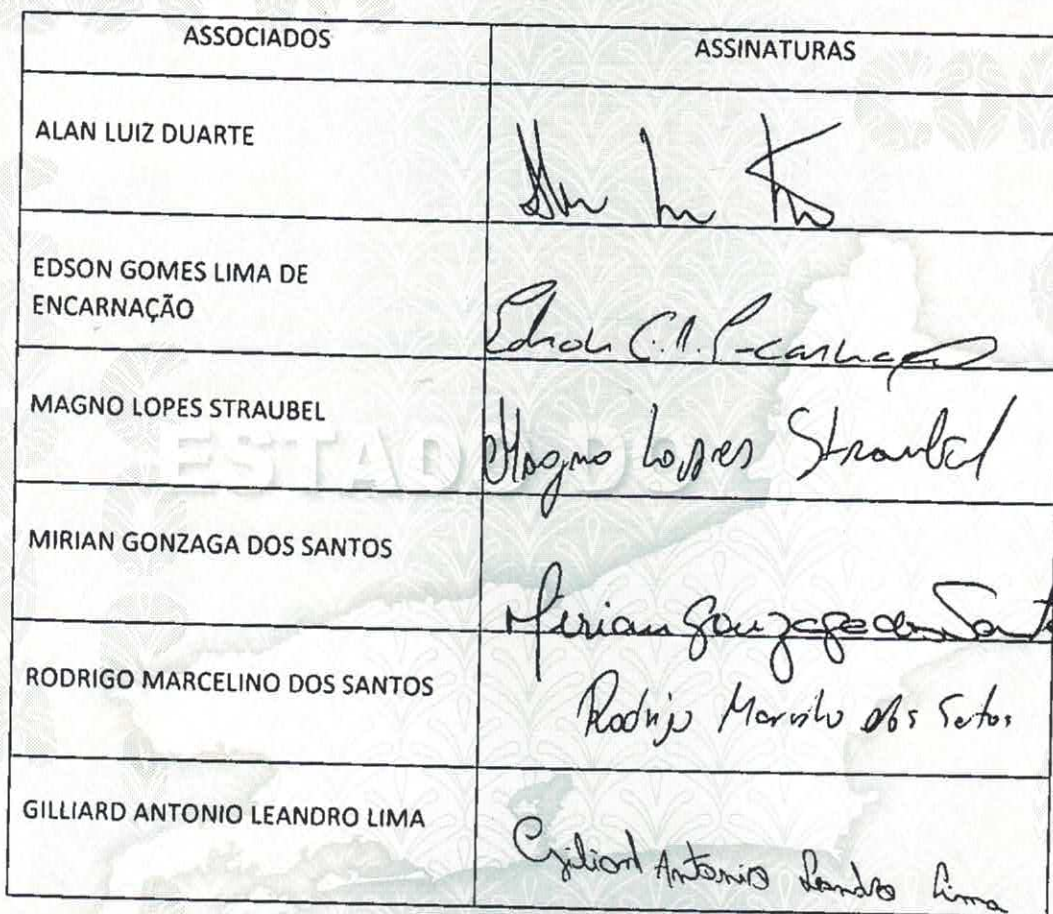 ASSOCIADOS
ASSINATURAS
ALAN LUIZ DUARTE
EDSON GOMES LIMA DE
ENCARNAÇÃO
Edson
MAGNO LOPES STRAUBEL
Magno Lopes Straubel
ESTADO DO
MIRIAN GONZAGA DOS SANTOS
Mirian Gonzaga dos Santos
RODRIGO MARCELINO DOS SANTOS
Rodrigo dos Santos
GILLIARD ANTONIO LEANDRO LIMA
Giliard Antonio Leandro Lima